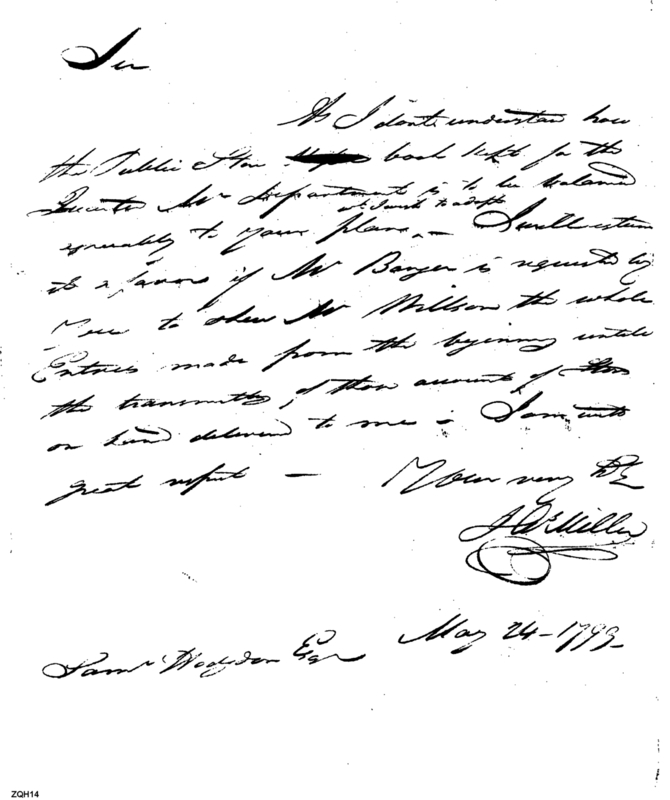 Sir
As I dont understan how
the Public Stor book kept for the
Quarter Mr Department is to be balanced
agreeably to your plan, wh I wish to adopt – I will esteem
it a favor if Mr Banger is requested by
you to shew Mr Willson the whole
Entries made from the begining untill
the transmitting of those account of
on hand delivered to me – I am with
great respect – Your very
J Miller
May 24 – 1793 –
Saml Hodgdon Esqr
ZQH14